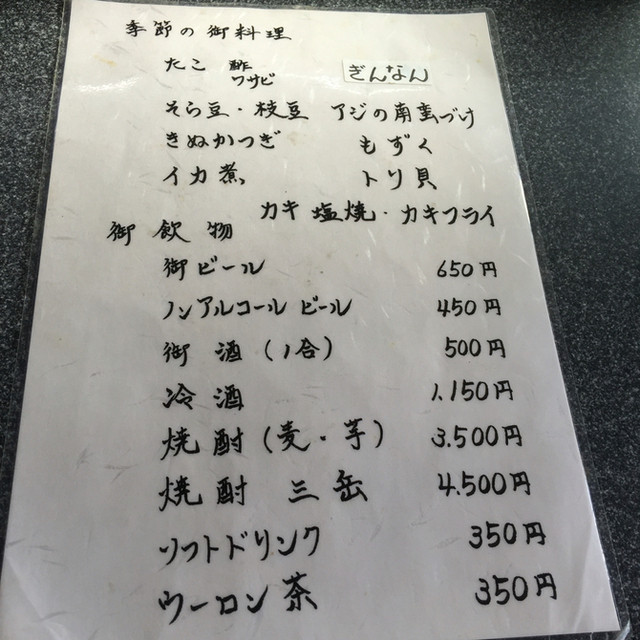 季節の御料理
たこ 酢 ワサビ ぎんなん
そら豆・枝豆 アジの南蛮づけ
きぬかつぎ もずく
イカ煮 トリ貝
カキ 塩焼・カキフライ
御飲物
御ビール 650円
ノンアルコールビール 450円
御酒(1合) 500円
冷酒 1.150円
焼酎(麦・芋) 3.500円
焼酎 三岳 4.500円
ソフトドリンク 350円
ウーロン茶 350円